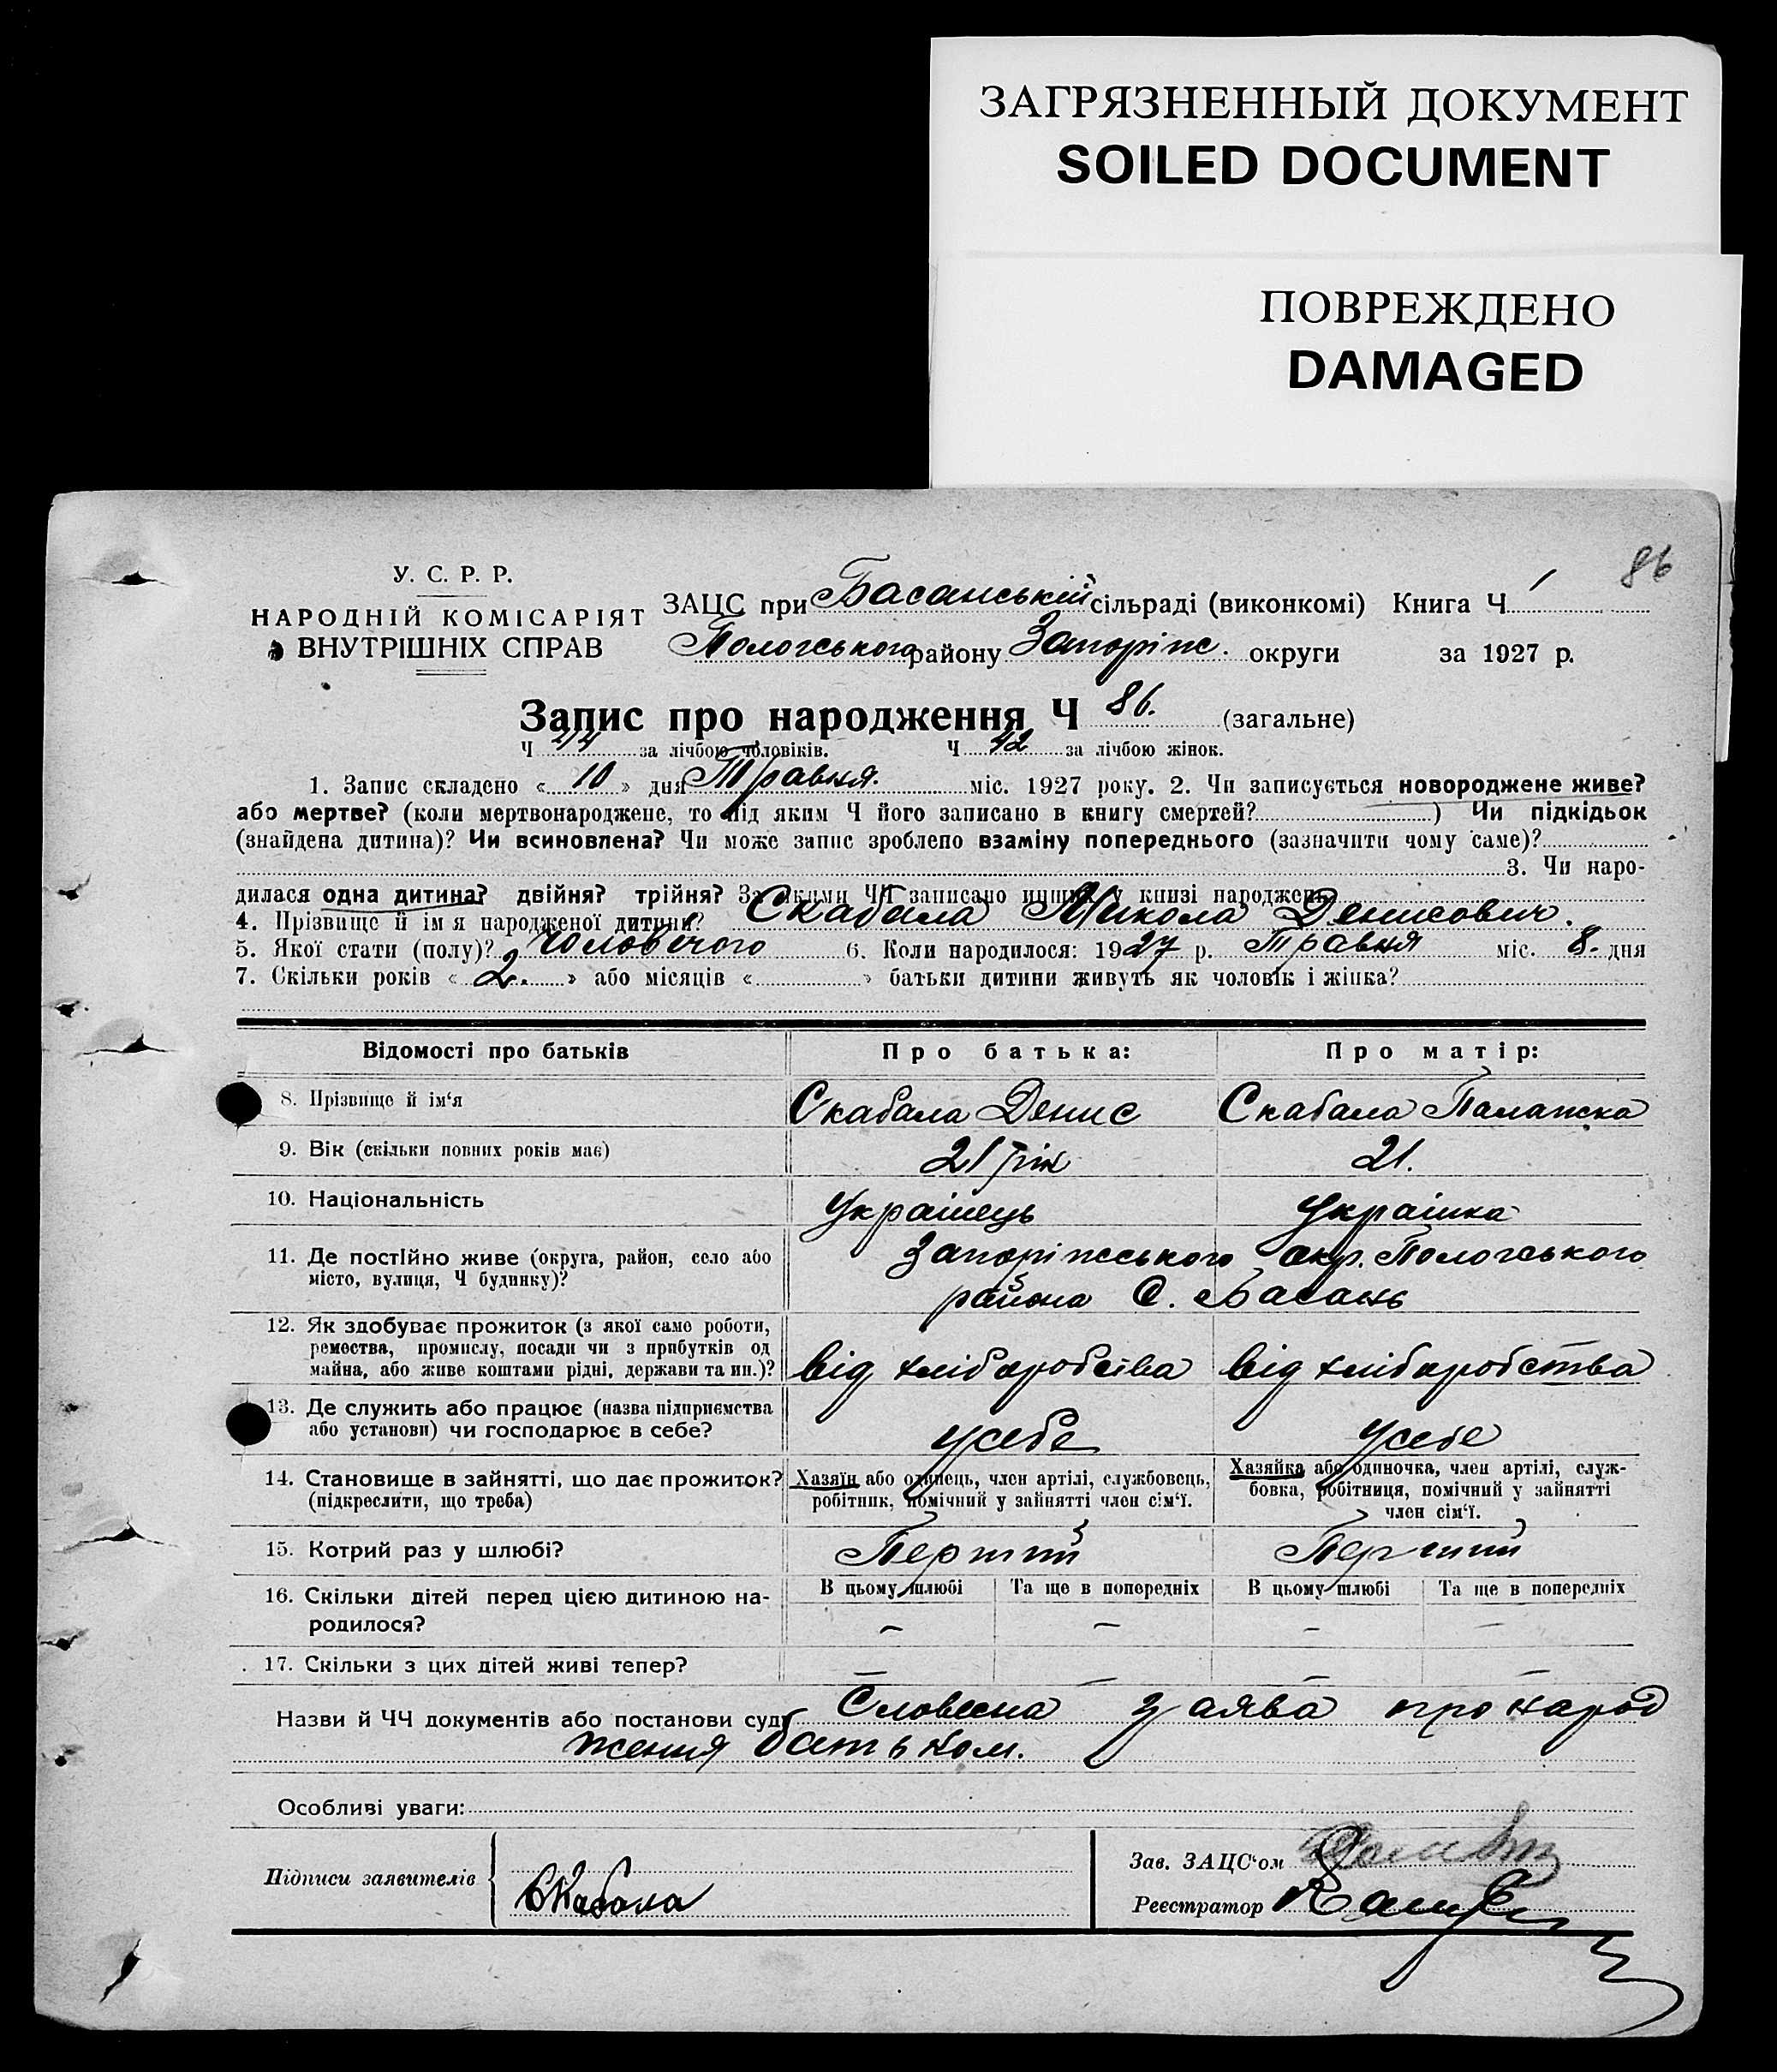 ЗАГРЯЗНЕННЫЙ ДОКУМЕНТ
SOILED DOCUMENT
ПОВРЕЖДЕНО
DAMAGED
86
У. С. Р. Р.
НАРОДНІЙ КОМІСАРІЯТ
ВНУТРІШНІХ СПРАВ
ЗАЦС при Басанській сільраді (виконкомі) Книга Ч 1
Пологського району Запоріж. округи за 1927 р.
Запис про народження Ч 86. (загальне)
Ч 44 за лічбою чоловіків. Ч 42 за лічбою жінок.
1. Запис складено « 10 » дня Травня. міс. 1927 року. 2. Чи записується новороджене живе?
або мертве? (коли мертвонароджене, то під яким Ч його записано в книгу смертей? ) Чи підкідьок
(знайдена дитина)? Чи всиновлена? Чи може запис зроблено взаміну попереднього (зазначити чому саме)?
3. Чи наро-
дилася одна дитина? двійня? трійня? За якими ЧЧ записано инших у книзі народжень
4. Прізвище й ім я народженої дитини? Скабала Микола Денисович.
5. Якої стати (полу)? чоловічого 6. Коли народилося: 1927 р. Травня міс. 8. дня
7. Скільки років « 2. » або місяців « » батьки дитини живуть як чоловік і жінка?
Відомості про батьків Про батька: Про матір:
8. Прізвище й ім‘я Скабала Денис Скабала Палажка
9. Вік (скільки повних років має) 21 рік 21.
10. Національність Українець Українка
11. Де постійно живе (округа, район, село або Запоріжського окр. Пологського
місто, вулиця, Ч будинку)? района С. Басань
12. Як здобуває прожиток (з якої само роботи,
ремества, промислу, посади чи з прибутків од
майна, або живе коштами рідні, держави та ин.)? від хліборобства від хліборобства
13. Де служить або працює (назва підприємства
або установи) чи господарює в себе? усебе усебе
14. Становище в зайнятті, що дає прожиток? Хазяїн або одинець, член артілі, службовець, Хазяйка або одиночка, член артілі, служ-
(підкреслити, що треба) робітник, помічний у зайнятті член сім‘ї. бовка, робітниця, помічний у зайнятті
член сім‘ї.
15. Котрий раз у шлюбі? Перший Перший
16. Скільки дітей перед цією дитиною на- В цьому шлюбі Та ще в попередніх В цьому шлюбі Та ще в попередніх
родилося? – – – –
17. Скільки з цих дітей живі тепер? – – – –
Назви й ЧЧ документів або постанови суду Словесна заява про народ
ження батьком.
Особливі уваги:
Підписи заявителів Скабала
Зав. ЗАЦС‘ом
Реєстратор